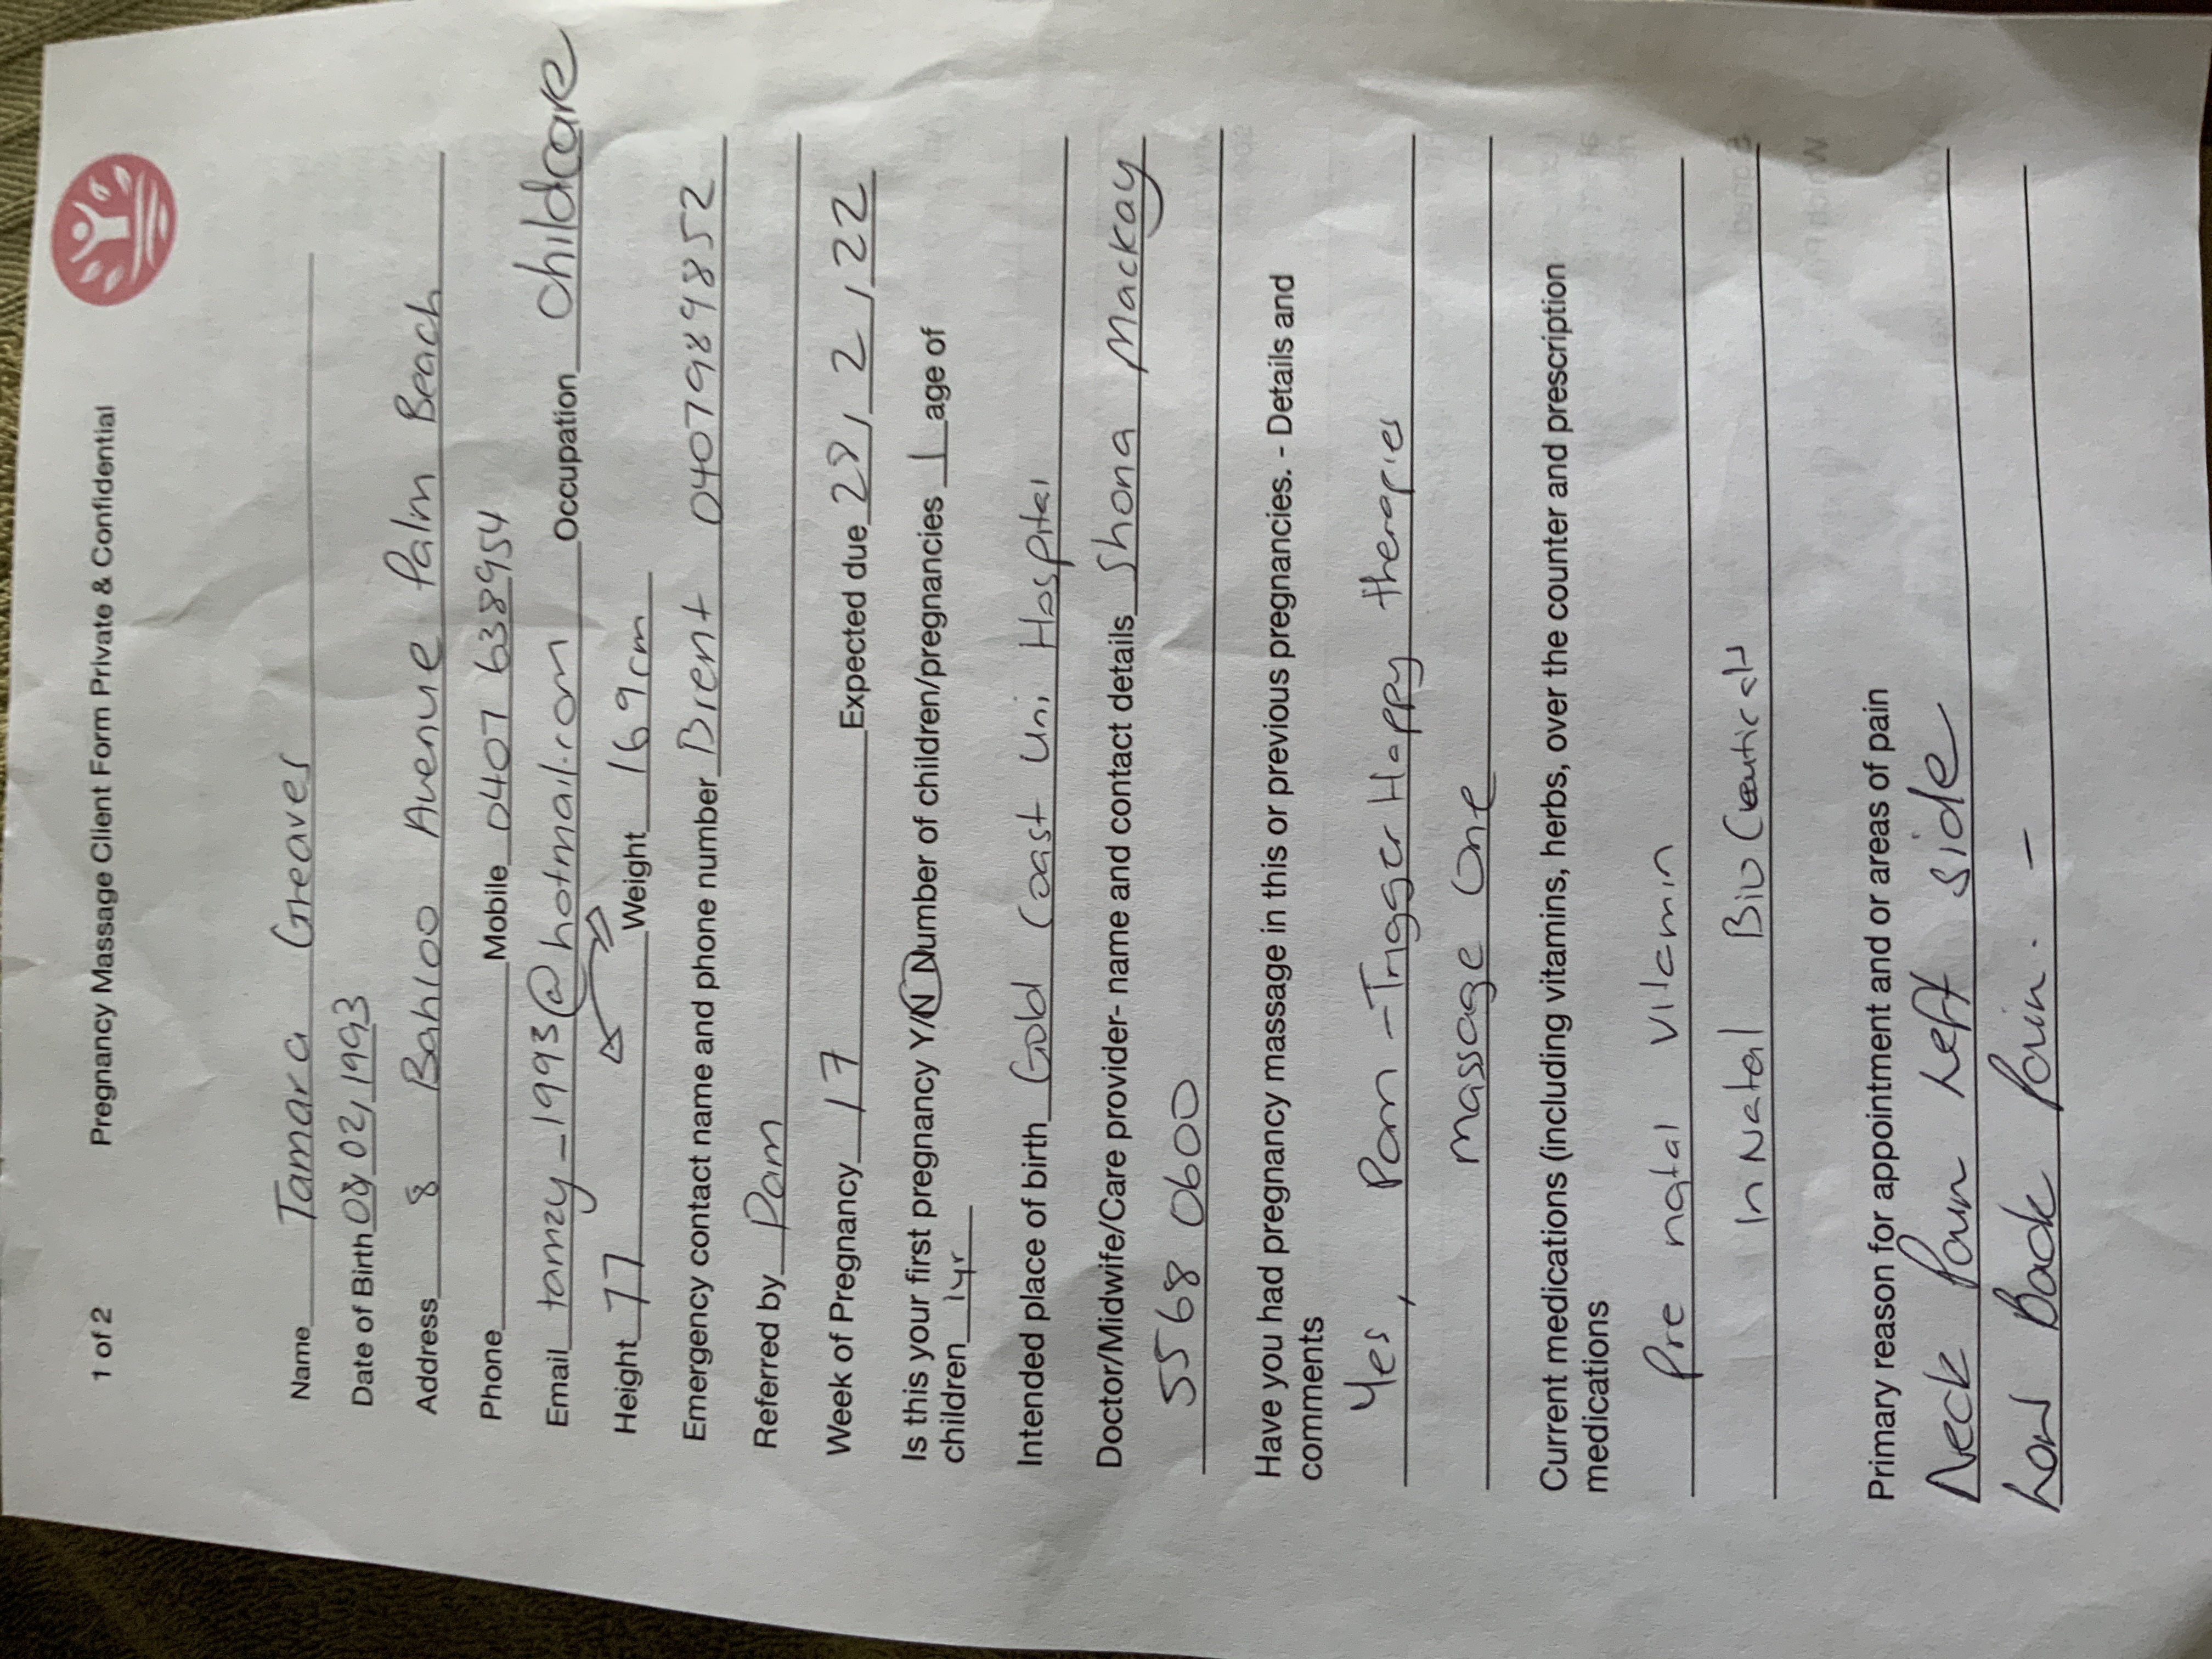 1 of 2 Pregnancy Massage Client Form Private & Confidential
Name Tamara Greaves
Date of Birth 08, 02, 1993
Address 8 Bahloo Avenue Palm Beach
Phone Mobile 0407 638954
Email tamzy_1993@hotmail.com Occupation Childcare
Height 77 Weight 169cm
Emergency contact name and phone number Brent 0407989852
Referred by Pam
Week of Pregnancy 17 Expected due 28, 2, 22
Is this your first pregnancy Y/N Number of children/pregnancies 1 age of
children 1yr
Intended place of birth Gold Coast Uni Hospital
Doctor/Midwife/Care provider- name and contact details Shona Mackay
5568 0600
Have you had pregnancy massage in this or previous pregnancies. - Details and
comments
Yes, Pam - Trigger Happy therapies
massage One
Current medications (including vitamins, herbs, over the counter and prescription
medications
Pre natal vitamin
In Natal Bio Ceuticals
Primary reason for appointment and or areas of pain
Neck Pain Left side
Low Back Pain. -